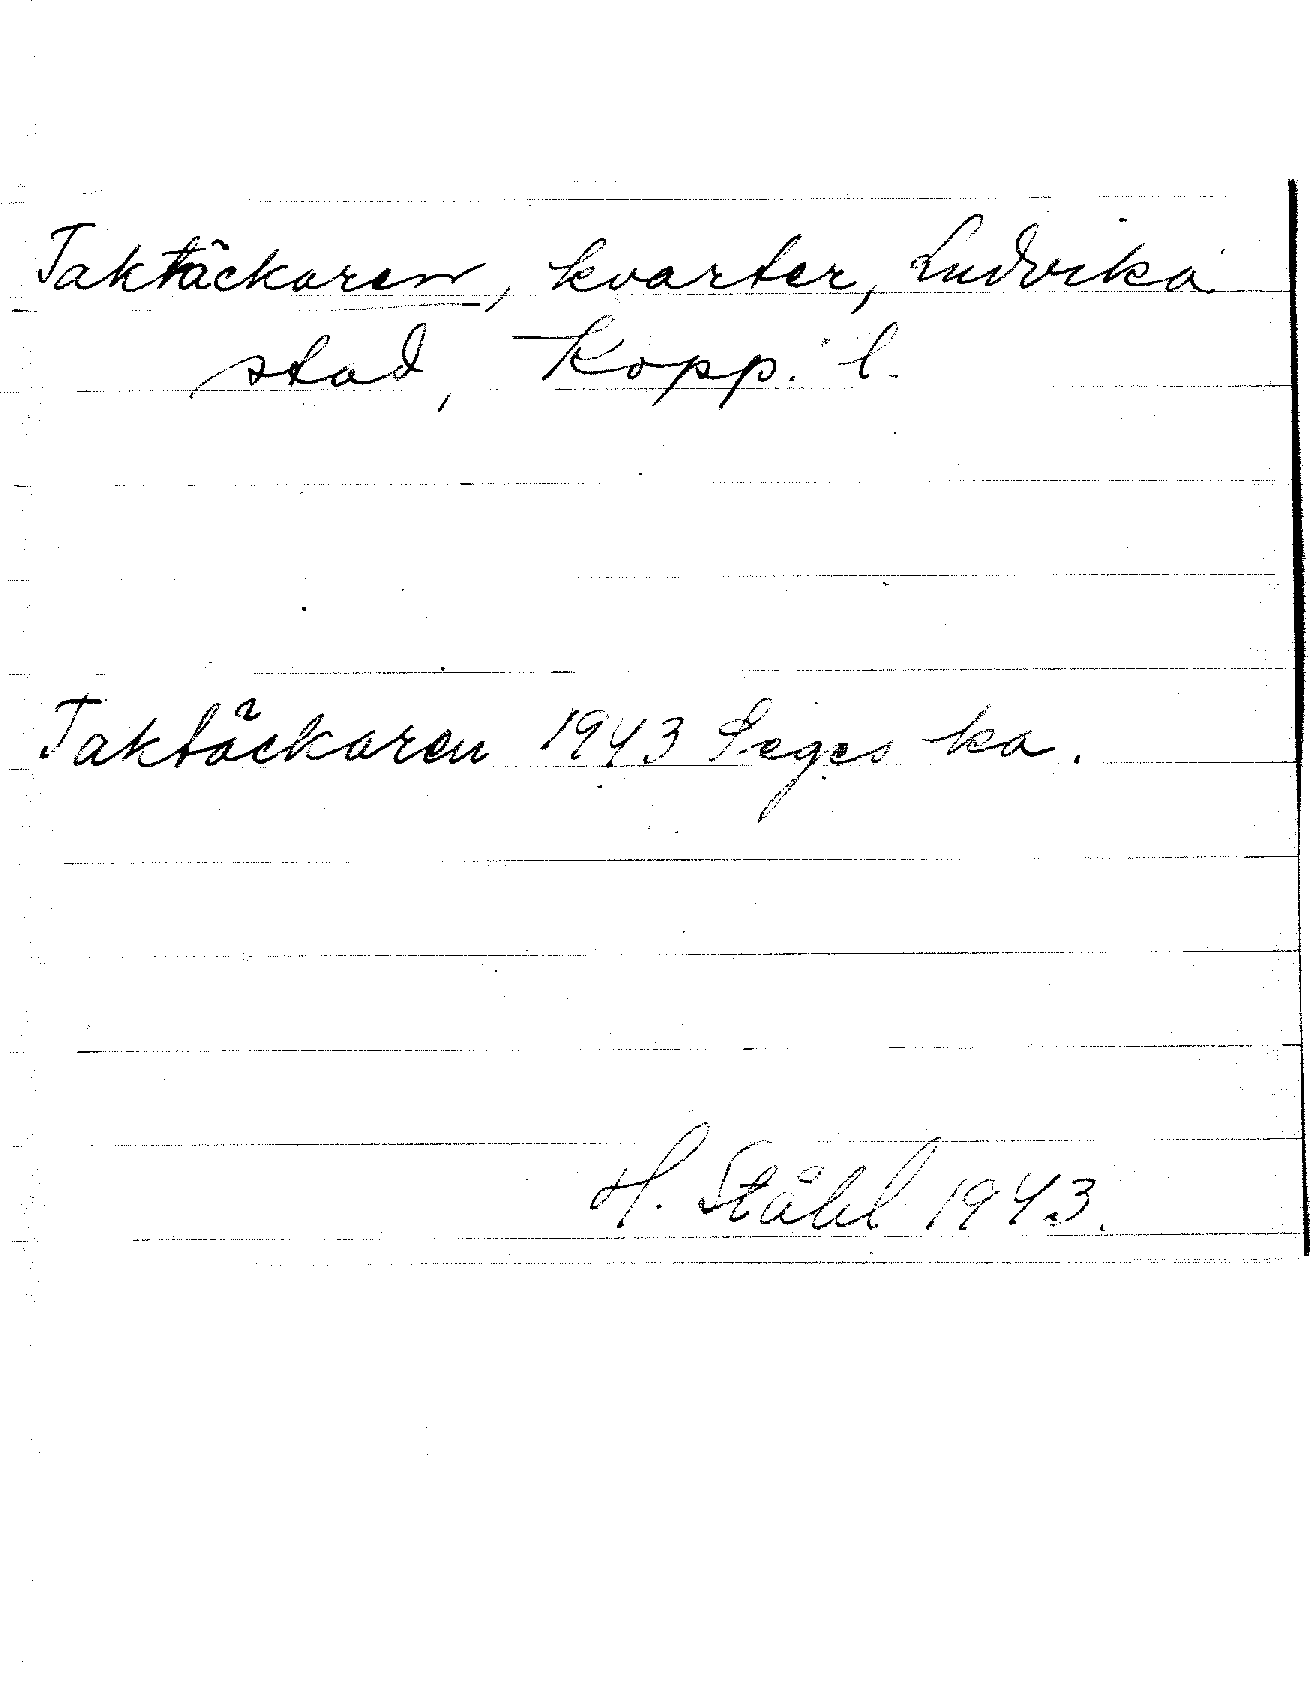 Taktäckaren, kvarter, Ludvika
stad, Kopp. l.
Taktäckaren 1943 Seges ka.
H. Ståhl 1943.